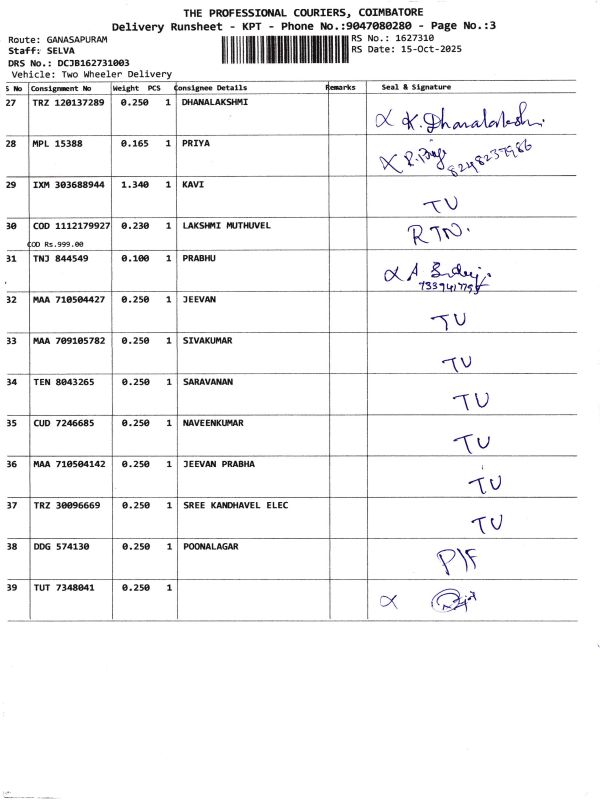 THE PROFESSIONAL COURIERS, COIMBATORE
Delivery Runsheet - KPT - Phone No.:9047080280 - Page No.:3
Route: GANASAPURAM
RS No.: 1627310
Staff: SELVA
RS Date: 15-Oct-2025
DRS No.: DCJB162731003
Vehicle: Two Wheeler Delivery
S No Consignment No Weight PCS Consignee Details Remarks Seal & Signature
27 TRZ 120137289 0.250 1 DHANALAKSHMI K. Dhanalakshmi
28 MPL 15388 0.165 1 PRIYA 8248237986
29 IXM 303688944 1.340 1 KAVI TU
30 COD 1112179927 0.230 1 LAKSHMI MUTHUVEL RTN.
COD Rs.999.00
31 TNJ 844549 0.100 1 PRABHU A
32 MAA 710504427 0.250 1 JEEVAN TU
33 MAA 709105782 0.250 1 SIVAKUMAR TU
34 TEN 8043265 0.250 1 SARAVANAN TU
35 CUD 7246685 0.250 1 NAVEENKUMAR TU
36 MAA 710504142 0.250 1 JEEVAN PRABHA TU
37 TRZ 30096669 0.250 1 SREE KANDHAVEL ELEC TU
38 DDG 574130 0.250 1 POONALAGAR P/F
39 TUT 7348041 0.250 1